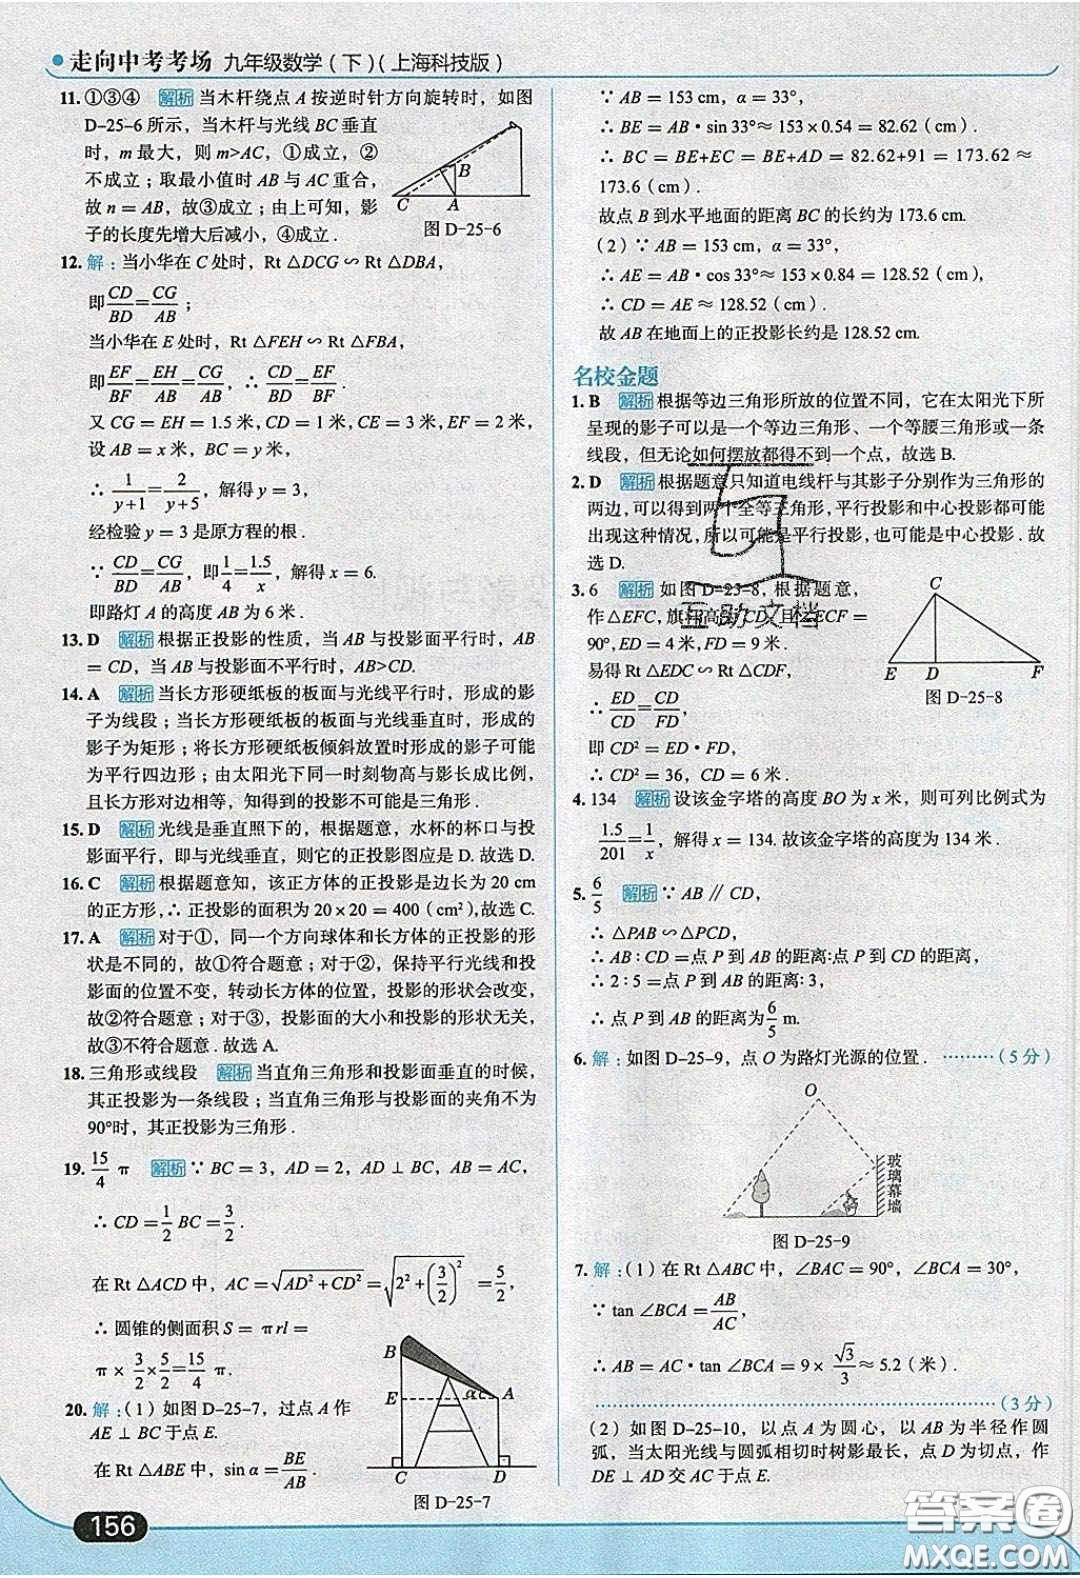 走向中考考场 九年级数学(下)(上海科技版)
11.①③④ 解析 当木杆绕点 A 按逆时针方向旋转时,如图
D-25-6 所示,当木杆与光线 BC 垂直
时,m 最大,则 m>AC,①成立,②
不成立;取最小值时 AB 与 AC 重合,
故 n = AB,故③成立;由上可知,影
子的长度先增大后减小,④成立.
B
C
A
图 D-25-6
12.解:当小华在 C 处时,Rt △DCG ∽ Rt △DBA,
即 CD/BD = CG/AB ;
当小华在 E 处时,Rt △FEH ∽ Rt △FBA,
即 EF/BF = EH/AB = CG/AB , ∴ CD/BD = EF/BF .
又 CG = EH = 1.5 米,CD = 1 米,CE = 3 米,EF = 2 米,
设 AB = x 米,BC = y 米,
∴ 1/(y+1) = 2/(y+5) ,解得 y = 3,
经检验 y = 3 是原方程的根.
∵ CD/BD = CG/AB ,即 1/4 = 1.5/x ,解得 x = 6.
即路灯 A 的高度 AB 为 6 米.
13. D 解析 根据正投影的性质,当 AB 与投影面平行时,AB
= CD,当 AB 与投影面不平行时,AB>CD.
14. A 解析 当长方形硬纸板的板面与光线平行时,形成的影
子为线段;当长方形硬纸板的板面与光线垂直时,形成的
影子为矩形;将长方形硬纸板倾斜放置时形成的影子可能
为平行四边形;由太阳光下同一时刻物高与影长成比例,
且长方形对边相等,知得到的投影不可能是三角形.
15. D 解析 光线是垂直照下的,根据题意,水杯的杯口与投
影面平行,即与光线垂直,则它的正投影图应是 D.故选 D.
16. C 解析 根据题意知,该正方体的正投影是边长为 20 cm
的正方形,∴ 正投影的面积为 20 × 20 = 400 (cm²),故选 C.
17. A 解析 对于①,同一个方向球体和长方体的正投影的形
状是不同的,故①符合题意;对于②,保持平行光线和投
影面的位置不变,转动长方体的位置,投影的形状会改变,
故②符合题意;对于③,投影面的大小和投影的形状无关,
故③不符合题意.故选 A.
18. 三角形或线段 解析 当直角三角形和投影面垂直的时候,
其正投影为一条线段;当直角三角形与投影面的夹角不为
90°时,其正投影为三角形.
19. 15/4 π 解析 ∵ BC = 3,AD = 2,AD ⊥ BC,AB = AC,
∴ CD = 1/2 BC = 3/2.
在 Rt △ACD 中,AC = √(AD² + CD²) = √(2² + (3/2)²) = 5/2,
∴ 圆锥的侧面积 S = πrl =
π × 3/2 × 5/2 = 15/4 π.
20. 解:(1)如图 D-25-7,过点 A 作
AE ⊥ BC 于点 E.
在 Rt △ABE 中,sin α = BE/AB.
B
E
α
A
C
D
图 D-25-7
156
∵ AB = 153 cm,α = 33°,
∴ BE = AB · sin 33° ≈ 153 × 0.54 = 82.62 (cm).
∴ BC = BE+EC = BE+AD = 82.62+91 = 173.62 ≈
173.6 (cm).
故点 B 到水平地面的距离 BC 的长约为 173.6 cm.
(2) ∵ AB = 153 cm,α = 33°,
∴ AE = AB · cos 33° ≈ 153 × 0.84 = 128.52 (cm),
∴ CD = AE ≈ 128.52 (cm).
故 AB 在地面上的正投影长约是 128.52 cm.
名校金题
1. B 解析 根据等边三角形所放的位置不同,它在太阳光下所
呈现的影子可以是一个等边三角形、一个等腰三角形或一条
线段,但无论如何摆放都得不到一个点,故选 B.
2. D 解析 根据题意只知道电线杆与其影子分别作为三角形的
两边,可以得到两个全等三角形,平行投影和中心投影都可能
出现这种情况,所以可能是平行投影,也可能是中心投影.故
选 D.
3. 6 解析 如图 D-25-8,根据题意,
作△EFC,旗杆高度 CD,且∠ECF =
90°,ED = 4 米,FD = 9 米.
易得 Rt △EDC ∽ Rt △CDF,
∴ ED/CD = CD/FD,
即 CD² = ED · FD,
∴ CD² = 36,CD = 6 米.
C
E
D
F
图 D-25-8
互助文档
4. 134 解析 设该金字塔的高度 BO 为 x 米,则可列比例式为
1.5/201 = 1/x,解得 x = 134. 故该金字塔的高度为 134 米.
5. 6/5 解析 ∵ AB ∥ CD,
∴ △PAB ∽ △PCD,
∴ AB : CD = 点 P 到 AB 的距离:点 P 到 CD 的距离,
∴ 2 : 5 = 点 P 到 AB 的距离: 3,
∴ 点 P 到 AB 的距离为 6/5 m.
6. 解:如图 D-25-9,点 O 为路灯光源的位置. ………(5 分)
O
玻璃幕墙
图 D-25-9
7. 解:(1)在 Rt △ABC 中,∠BAC = 90°,∠BCA = 30°,
∵ tan ∠BCA = AB/AC,
∴ AB = AC · tan ∠BCA = 9 × √3/3 ≈ 5.2 (米).
………(3 分)
(2)如图 D-25-10,以点 A 为圆心,以 AB 为半径作圆
弧,当太阳光线与圆弧相切时树影最长,点 D 为切点,作
DE ⊥ AD 交 AC 于点 E.
答案圈
MXQE.COM